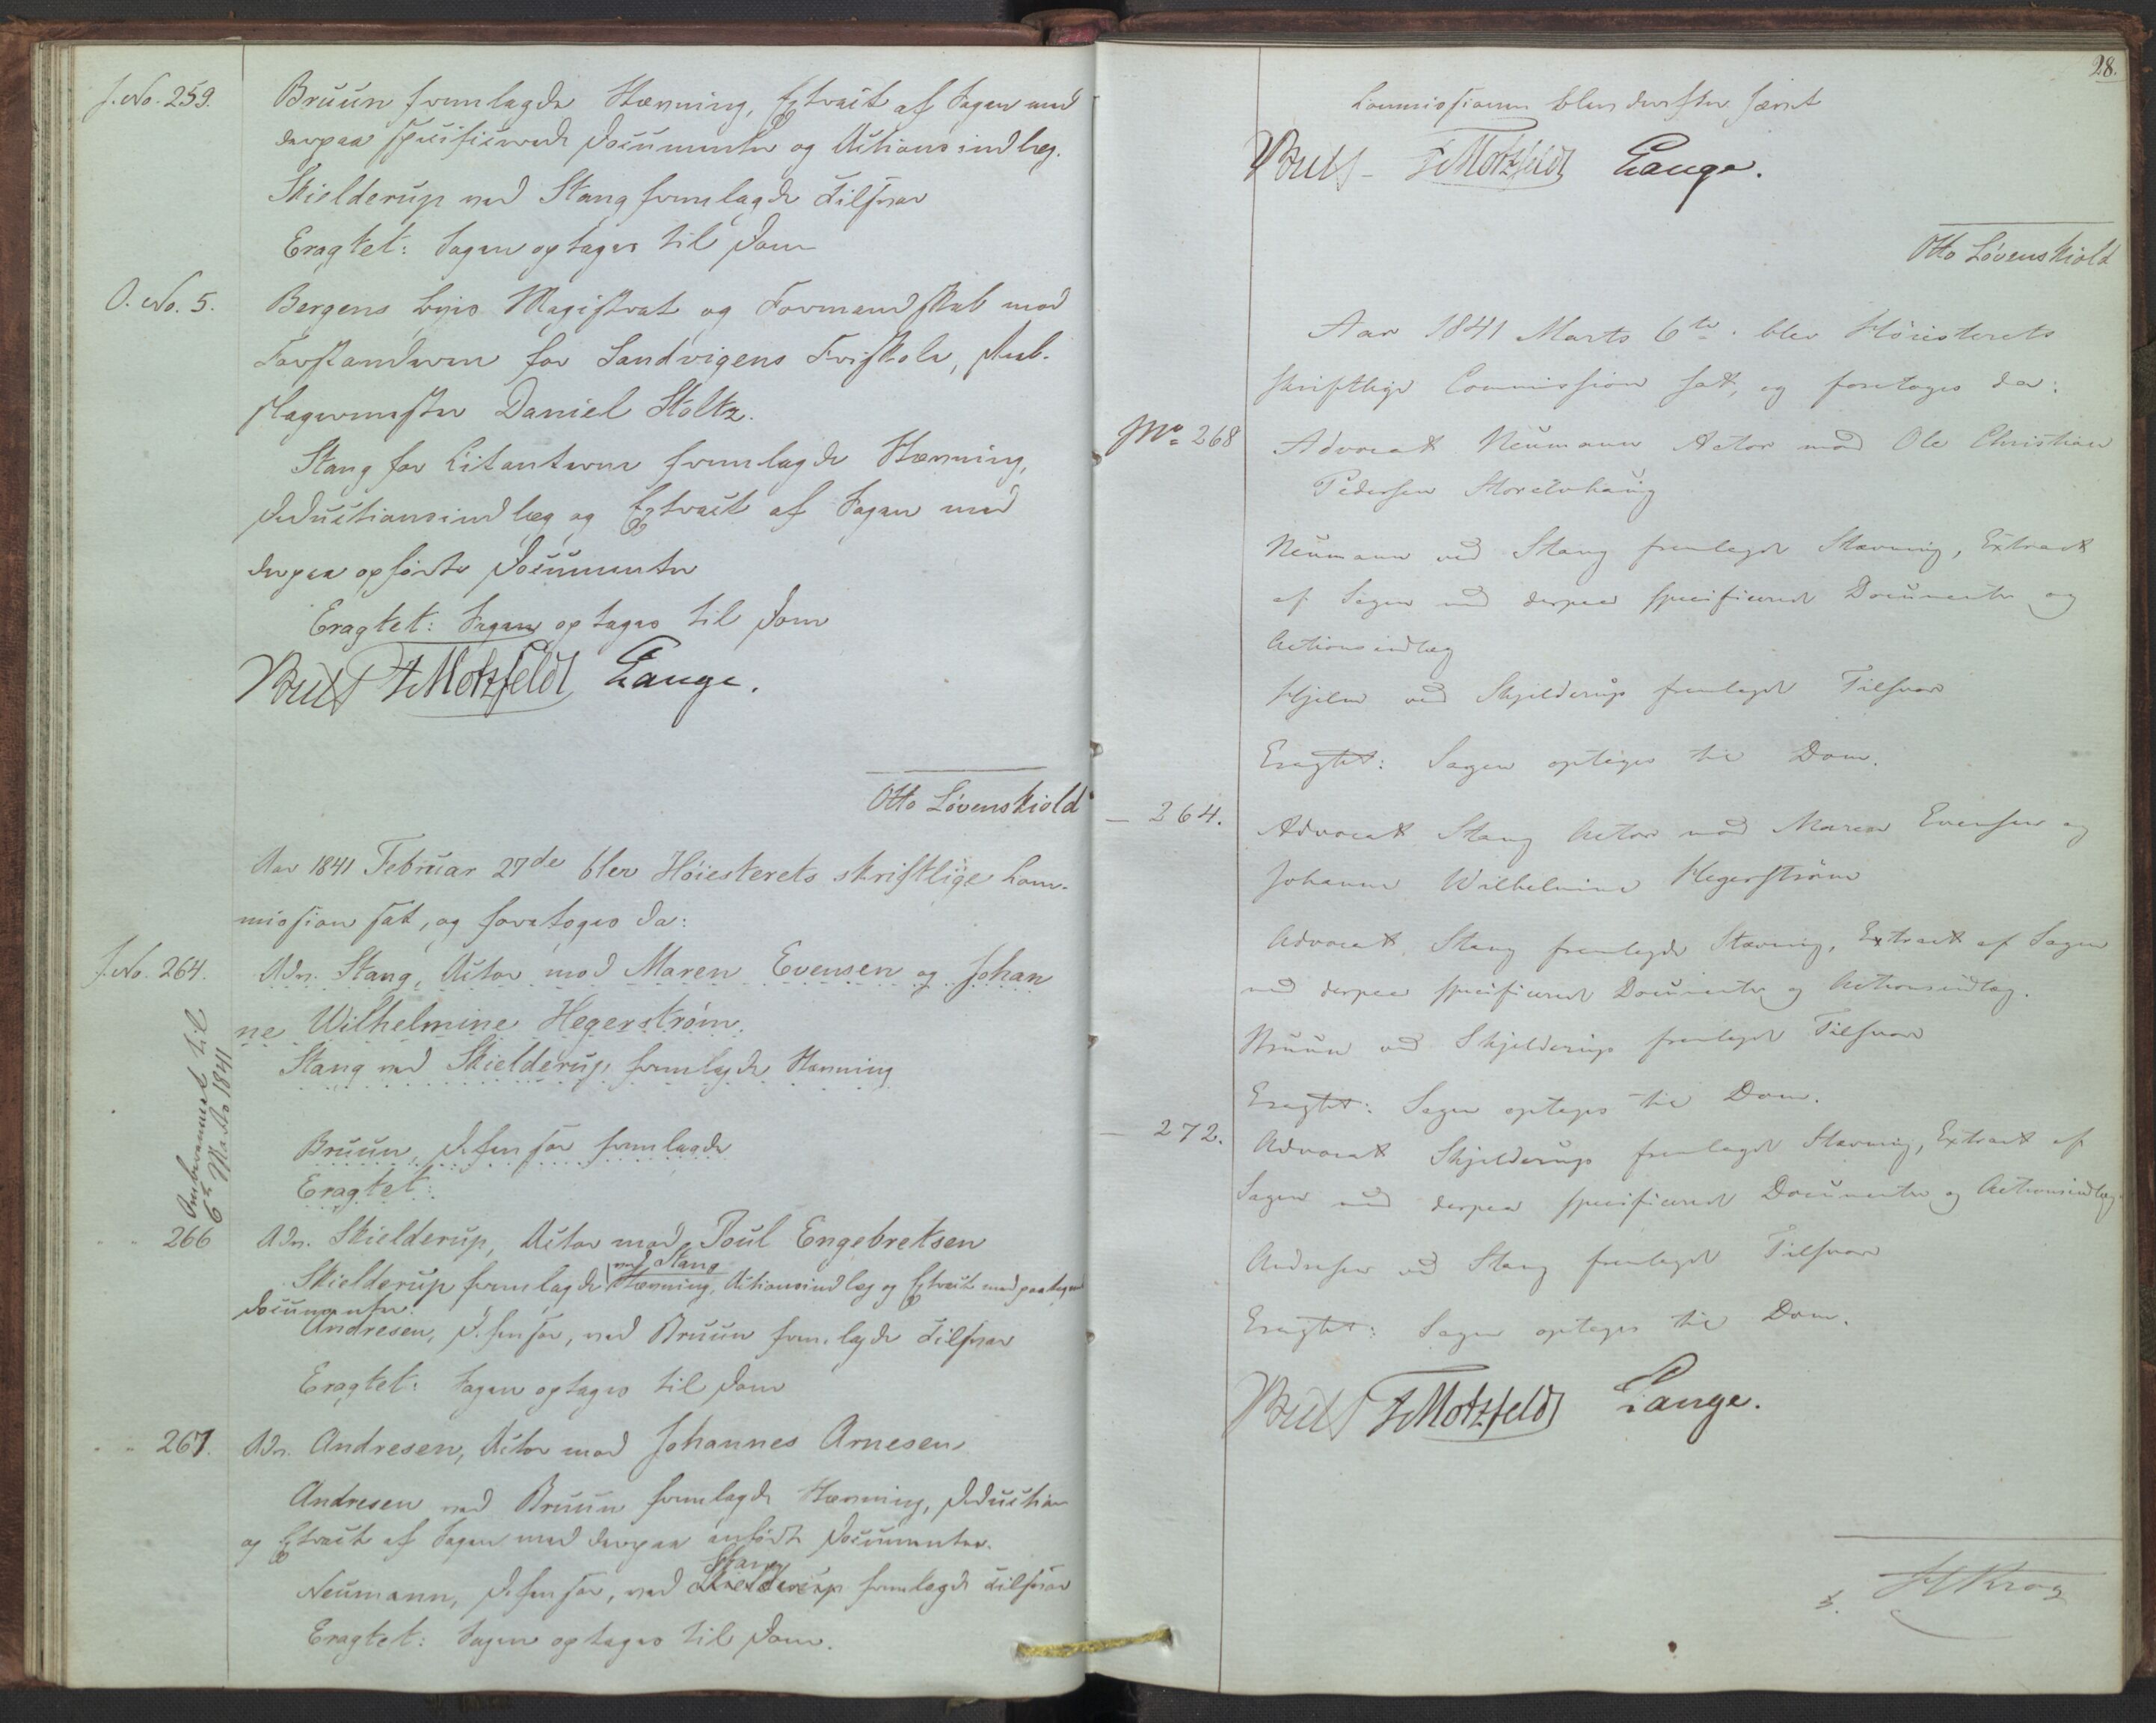 J. No. 259. Bruun fremlagde Stævning, Extract af Sagen med
derpaa specificerede Documenter og Actionsindlæg.
Skielderup ved Stang fremlagde Tilsvar
Eragtet: Sagen optages til Dom
O. No. 5. Bergens Byes Magistrat og Formandskab mod
Forstanderen for Sandvigens Friskole, Reb-
slagermester Daniel Stoltz.
Stang for Citanterne fremlagde Stævning,
Deductionsindlæg og Extract af Sagen med
derpaa opførte Documenter
Eragtet: Sagen optages til Dom
Bull F Motzfeldt Lange.
Otto Løvenskiold
Aar 1841 Februar 27de blev Høiesterets skriftlige Com-
mission sat, og foretoges da:
J. No. 264. Adv. Stang, Actor mod Maren Evensen og Johan
ne Wilhelmine Hegerstrøm.
Stang ved Skielderup fremlagde Stævning
Bruun, Defensor fremlagde
Eragtet:
Omberammet til
6te Marts 1841
" " 266 Adv. Skielderup, Actor mod Poul Engebretsen
ved Stang
Skielderup fremlagde Stævning, Actionsindlæg og Extract med paategnede
Documenter.
Andresen, Defensor, ved Bruun fremlagde Tilsvar
Eragtet: Sagen optages til Dom
" " 267. Adv. Andresen, Actor mod Johannes Arnesen
Andresen ved Bruun fremlagde Stævning, Deduction
og Extract af Sagen med derpaa anførte Documenter.
Stang
Neumann, Defensor, ved Skielderup fremlagde Tilsvar
Eragtet: Sagen optages til Dom.
28.
Commissionen blev derefter hævet
Bull F Motzfeldt Lange.
Otto Løvenskiold
Aar 1841 Marts 6te blev Høiesterets
skriftlige Commission sat, og foretoges da:
J No 268 Advocat Neumann Actor mod Ole Christian
Pedersen Storelvhaug
Neumann ved Stang fremlagde Stævning, Extract
af Sagen med derpaa specificerede Documenter og
Actionsindlæg
Hjelm ved Skjelderup fremlagde Tilsvar
Eragtet: Sagen optages til Dom.
— 264. Advocat Stang Actor mod Maren Evensen og
Johanne Wilhelmine Hegerstrøm
Advocat Stang fremlagde Stævning, Extract af Sagen
med derpaa specificerede Documenter og Actionsindlæg.
Bruun ved Skjelderup fremlagde Tilsvar
Eragtet: Sagen optages til Dom.
— 272. Advocat Skjelderup fremlagde Stævning, Extract af
Sagen med derpaa specificerede Documenter og Actionsindlæg
Andresen ved Stang fremlagde Tilsvar
Eragtet: Sagen optages til Dom.
Bull F Motzfeldt Lange.
Krog